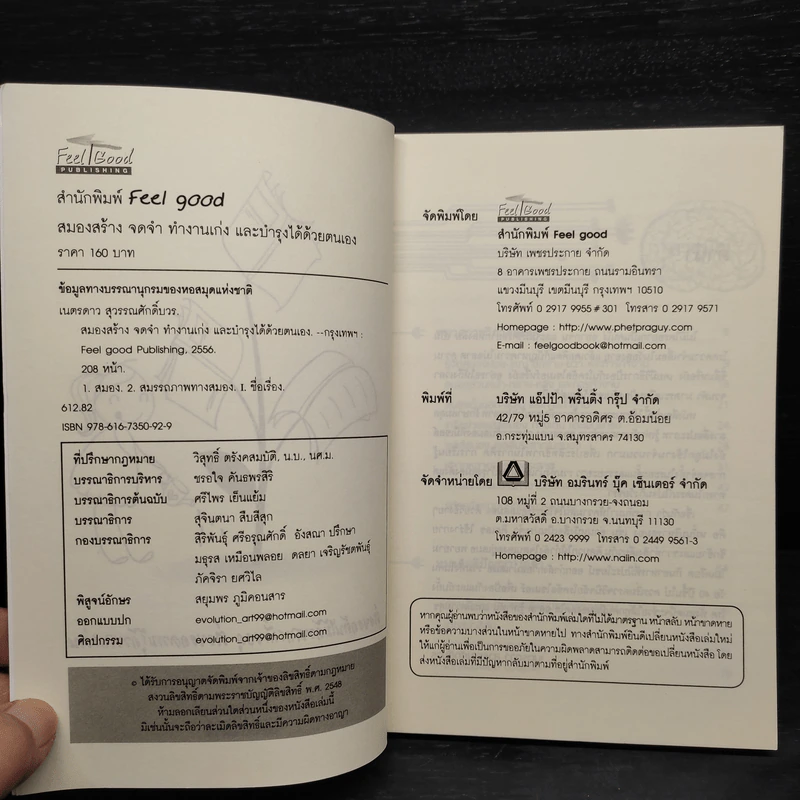 Feel Good
PUBLISHING
สำนักพิมพ์ Feel good
สมองสร้าง จดจำ ทำงานเก่ง และบำรุงได้ด้วยตนเอง
ราคา 160 บาท
ข้อมูลทางบรรณานุกรมของหอสมุดแห่งชาติ
เนตรดาว สุวรรณศักดิ์บวร.
สมองสร้าง จดจำ ทำงานเก่ง และบำรุงได้ด้วยตนเอง. --กรุงเทพฯ :
Feel good Publishing, 2556.
208 หน้า.
1. สมอง. 2. สมรรถภาพทางสมอง. I. ชื่อเรื่อง.
612.82
ISBN 978-616-7350-92-9
ที่ปรึกษากฎหมาย วิสุทธิ์ ตรังคสมบัติ, น.บ., นศ.ม.
บรรณาธิการบริหาร ชรอใจ คันธพรสิริ
บรรณาธิการต้นฉบับ ศรีไพร เย็นแย้ม
บรรณาธิการ สุจินตนา สืบสีสุก
กองบรรณาธิการ สิริพันธุ์ ศรีอรุณศักดิ์ อังสณา ปรึกษา
มธุรส เหมือนพลอย ดลยา เจริญรัชตพันธุ์
ภัคจิรา ยศวิไล
พิสูจน์อักษร สยุมพร ภูมิคอนสาร
ออกแบบปก evolution_art99@hotmail.com
ศิลปกรรม evolution_art99@hotmail.com
© ได้รับการอนุญาตจัดพิมพ์จากเจ้าของลิขสิทธิ์ตามกฎหมาย
สงวนลิขสิทธิ์ตามพระราชบัญญัติลิขสิทธิ์ พ.ศ. 2548
ห้ามลอกเลียนส่วนใดส่วนหนึ่งของหนังสือเล่มนี้
มิเช่นนั้นจะถือว่าละเมิดลิขสิทธิ์และมีความผิดทางอาญา
จัดพิมพ์โดย Feel Good
PUBLISHING
สำนักพิมพ์ Feel good
บริษัท เพชรประกาย จำกัด
8 อาคารเพชรประกาย ถนนรามอินทรา
แขวงมีนบุรี เขตมีนบุรี กรุงเทพฯ 10510
โทรศัพท์ 0 2917 9955 # 301 โทรสาร 0 2917 9571
Homepage : http://www.phetpraguy.com
E-mail : feelgoodbook@hotmail.com
พิมพ์ที่ บริษัท แอ๊ปป้า พริ้นติ้ง กรุ๊ป จำกัด
42/79 หมู่5 อาคารอดิศร ต.อ้อมน้อย
อ.กระทุ่มแบน จ.สมุทรสาคร 74130
จัดจำหน่ายโดย บริษัท อมรินทร์ บุ๊ค เซ็นเตอร์ จำกัด
108 หมู่ที่ 2 ถนนบางกรวย-จงถนอม
ต.มหาสวัสดิ์ อ.บางกรวย จ.นนทบุรี 11130
โทรศัพท์ 0 2423 9999 โทรสาร 0 2449 9561-3
Homepage : http://www.nalin.com
หากคุณผู้อ่านพบว่าหนังสือของสำนักพิมพ์เล่มใดที่ไม่ได้มาตรฐาน หน้าสลับ หน้าขาดหาย
หรือข้อความบางส่วนในหน้าขาดหายไป ทางสำนักพิมพ์ยินดีเปลี่ยนหนังสือเล่มใหม่
ให้แก่ผู้อ่านเพื่อเป็นการขออภัยในความผิดพลาดสามารถติดต่อขอเปลี่ยนหนังสือ โดย
ส่งหนังสือเล่มที่มีปัญหากลับมาตามที่อยู่สำนักพิมพ์